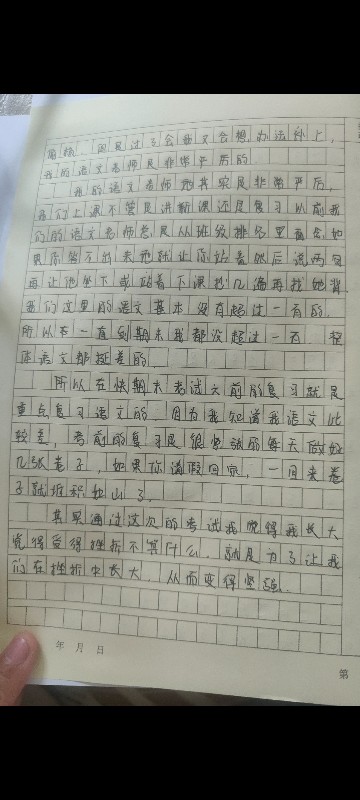 我的语文老师是非常严厉的
我的语文老师她其实是非常严厉,
我们上课不管是讲新课还是复习以前我
们的语文老师总是从班级排名里面念,如
果你答不出来她就让你站着然后说两句
再让他坐下或站着下课抄几遍再找她背
我们这里的语文基本没有超过一百的,
所以在一直到期末我都没超过一百,整
体语文都挺差的
所以在快期末考试文前的复习就是
重点复习语文的,因为我知道我语文比
较差,考前的复习是很紧张的每天做好
几张卷子,如果你请假回家,一回来卷
子就堆积如山了,
其实通过这次的考试我觉得我长大
觉得受得挫折不算什么,就是为了让我
们在挫折中长大,从而变得坚强.
年 月 日
第